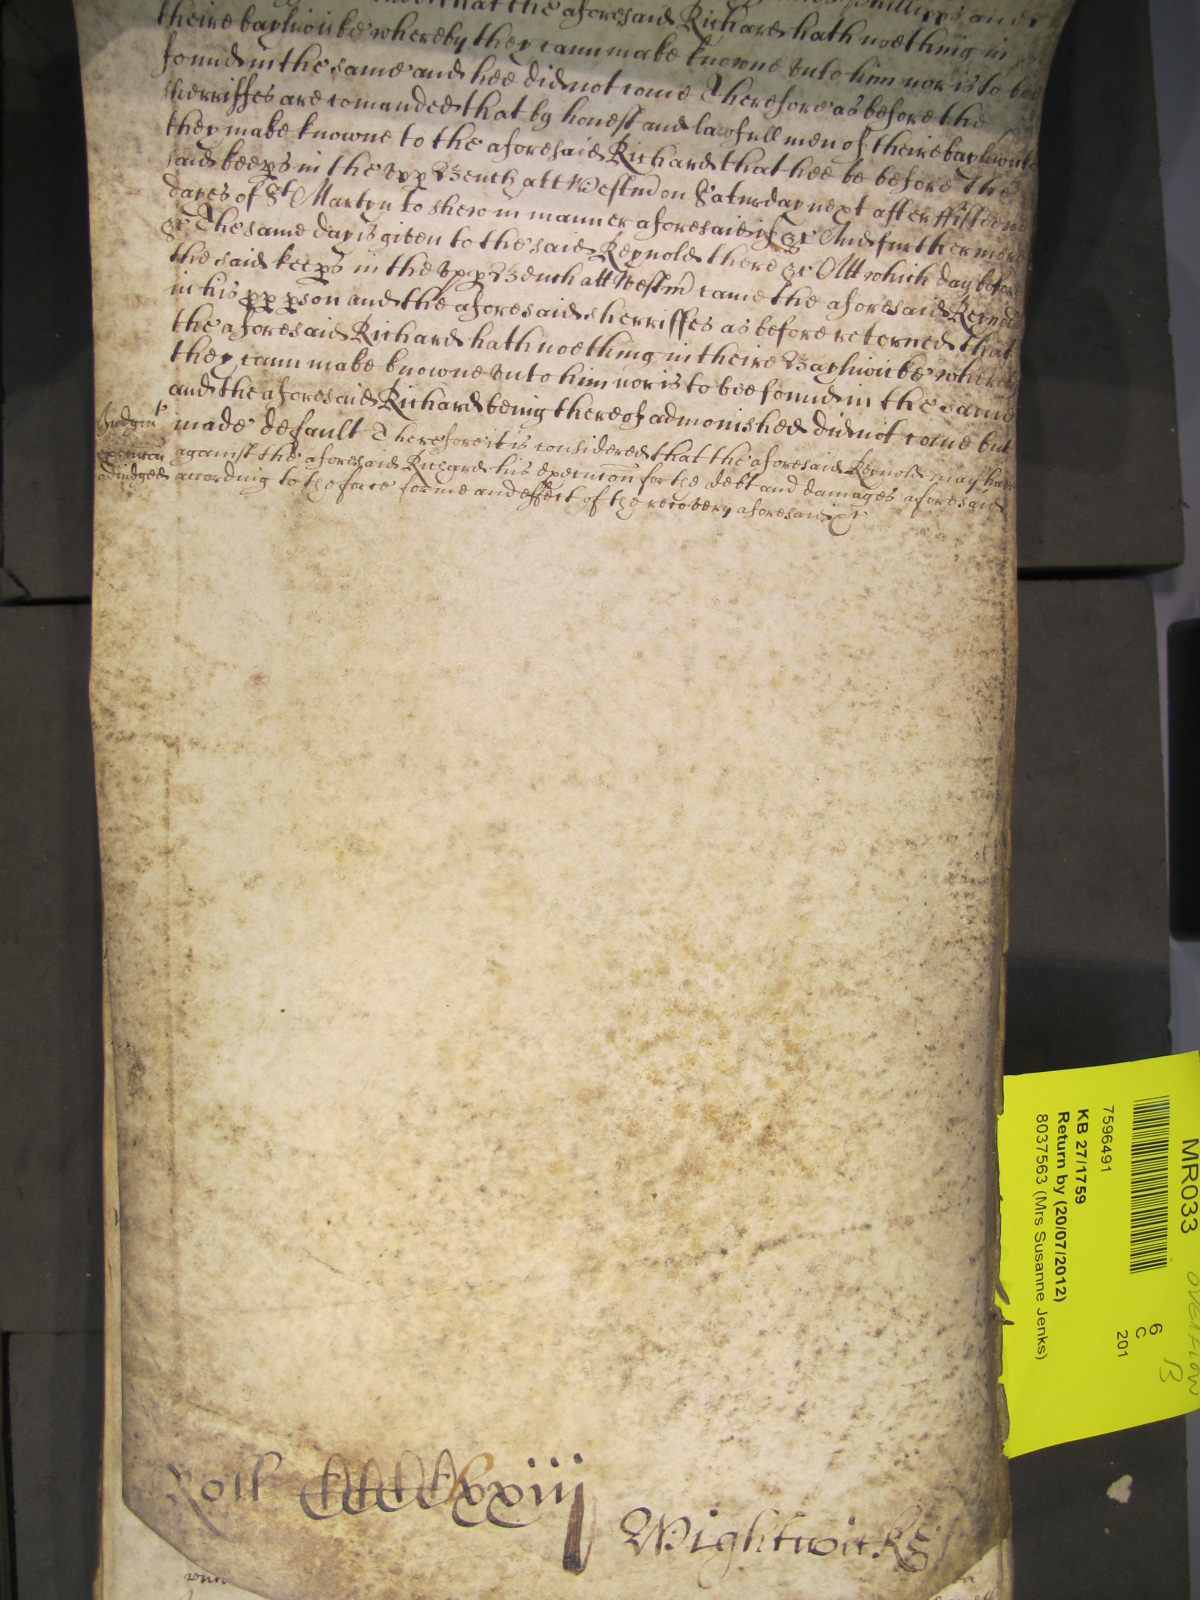 that the aforesaid Richard hath noething in
theire bayliwicke whereby they cann make knowne unto him nor is to bee
found in the same and hee did not come Therefore as before the
sherriffes are comanded that by honest and lawfull men of theire bayliwicke
they make knowne to the aforesaid Richard that hee be before the
said keeps in the upp Bench att Westm on Saturday next after fifteene
dayes of St Martyn to shew in manner aforesaid if &c And furthermore
&c The same day is given to the said Reynold there &c Att which day before
the said keeps in the upp Bench att Westm came the aforesaid Reynold
in his pp pson and the aforesaid sherriffes as before retorned that
the aforesaid Richard hath noething in theire Bayliwicke whereby
they cann make knowne unto him nor is to bee found in the same
and the aforesaid Richard being thereof admonished did not come but
Judgmt made default Therefore it is considered that the aforesaid Reynold may have
execucon against the aforesaid Richard his execucon for the debt and damages aforesaid
adiudged according to the force forme and effect of the recovery aforesaid &c
Roll CCCCCxxiij
Wightwicke
MR033
overflow
B
6
C
201
7596491
KB 27/1759
Return by (20/07/2012)
8037563 (Mrs Susanne Jenks)